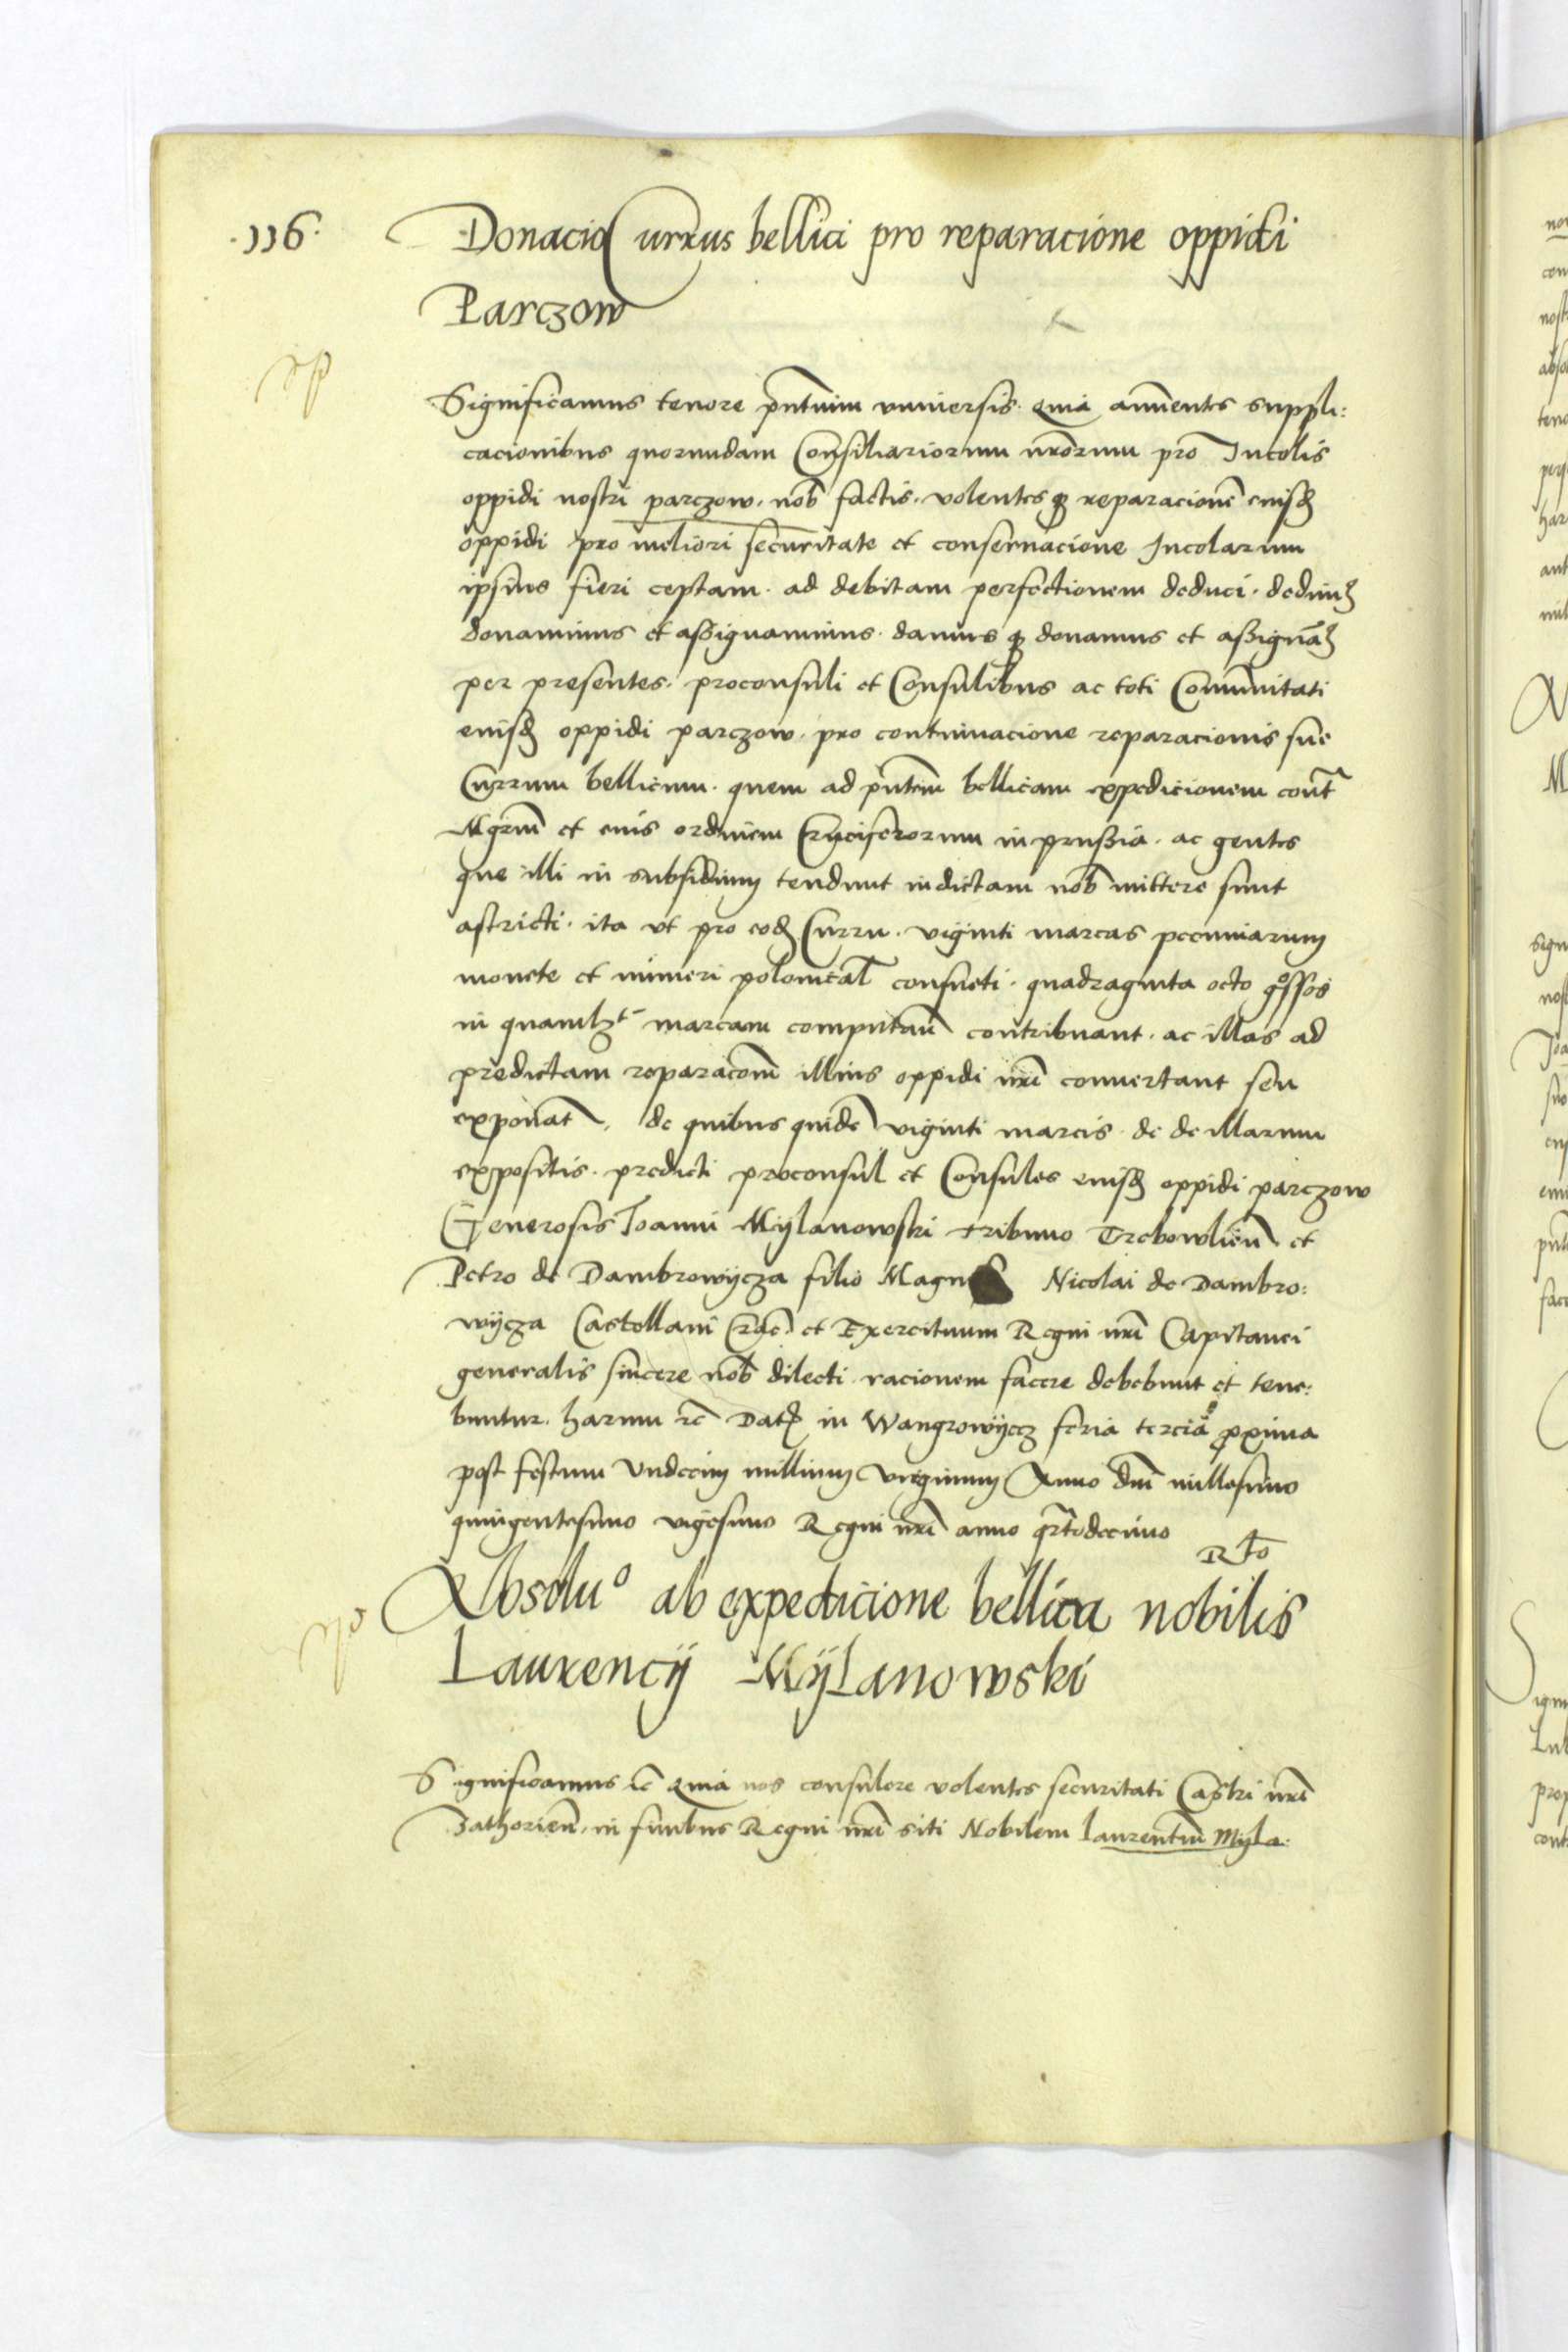 .116.
Donacio Currus bellici pro reparacione oppidi
Parczow
Significamus tenore p̄ntuim vniuersis. Quia annuentes suppli:
cacionibus quorundam Consiliariorum nr̄orum pro Incolis
oppidi nostri parczow. nob̄ factis. volentesq̨ reparacionē eiusd̨
oppidi pro meliori securitate et conseruacione Incolarum
ipsius fieri ceptam. ad debitam perfectionem deduci. dedimꝯ
donauimus et assignauimus. damusq̨ donamus et assignāꝯ
per presentes. proconsuli et Consulibus ac toti Com̄unitati
eiusd̨ oppidi parczow. pro continuacione reparacionis sue
Currum bellicum. quem ad p̄ntem bellicam expedicionem cont̄
Mgr̄m et eius ordinem Cruciferorum in prussia. ac gentes
que illi in subsidium tendunt indictam nob̄ mittere sunt
astricti. ita vt pro eod̨ Curru. viginti marcas pecuniarum
monete et numeri polonical̄ consueti. quadraginta octo gꝛossos
in quamlꝫt marcam computan̄ contribuant. ac illas ad
predictam reparacōnem illius oppidi nr̄i conuertant seu
exponāt. de quibus quidē viginti marcis. de de illarum
expositis. predicti proconsul et Consules eiusd̨ oppidi parczow
Generosis Joanni Mÿlanowski tribuno Trebowlien̄. et
Petro de Dambrowÿcza filio Magn Nicolai de Dambro:
wÿcza Castellani Crac̄. et Exercituum Regni nr̄i Capitanei
generalis sincere nob̄ dilecti racionem facere debebunt et tene:
buntur. harum ꝛc̄ Datꝭ in Wangrowÿecz feria tercia pꝛoxima
post festum Vndecim millium virginum Anno dn̄i millesimo
quingentesimo vigesimo Regni nr̄i anno qr̄todecimo
R̄to
Absoluº ab expedicione bellica nobilis
Laurencÿ Mÿlanowski
Significamus ꝛc̄ Quia nos consulere volentes securitati Castri nr̄i
Zathorien̄. in finibus Regni nr̄i siti Nobilem Laurentiū Mÿla: